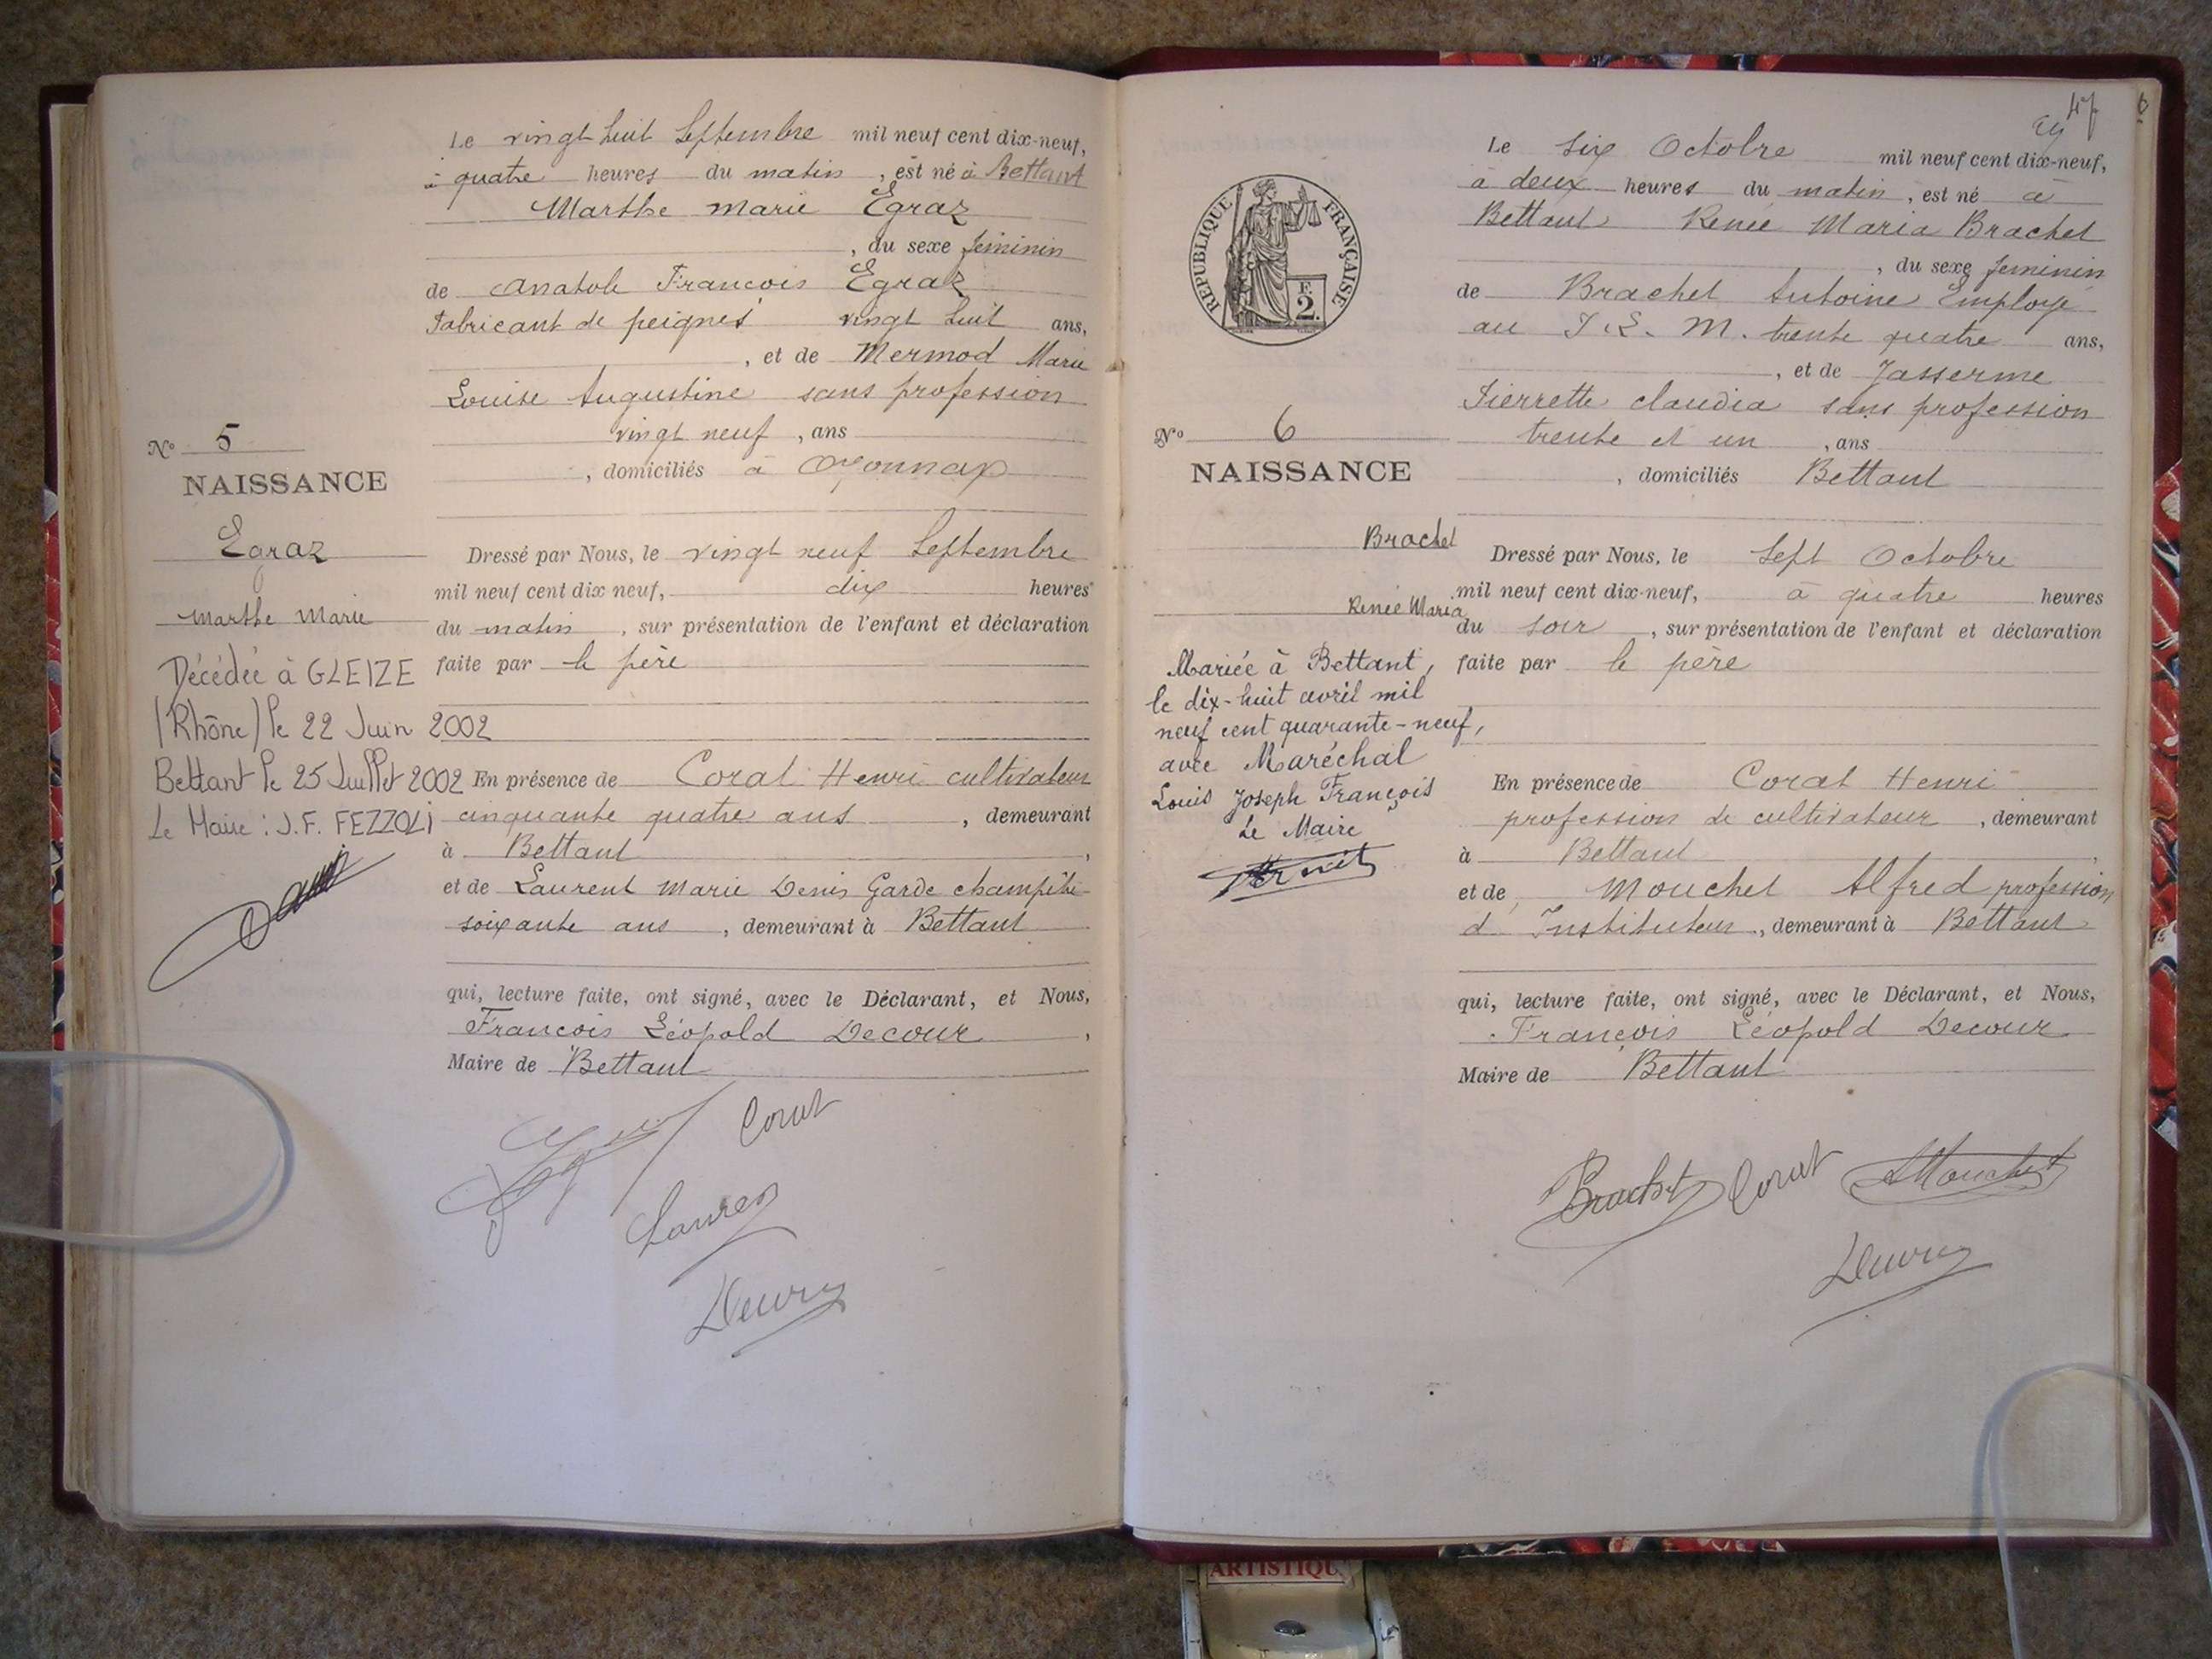 Le vingt huit Septembre mil neuf cent dix-neuf,
à quatre heures du matin, est né à Bettant
Marthe Marie Egraz
, du sexe feminin
de Anatole Francois Egraz
Fabricant de peignes vingt huit ans,
, et de Mermod Marie
Louise Augustine sans profession
vingt neuf, ans
, domiciliés à Oyonnax
N° 5
NAISSANCE
Egraz
Marthe Marie
Décédée à GLEIZE
(Rhône) le 22 Juin 2002
Bettant le 25 Juillet 2002
Le Maire : J.F. FEZZOLI
Dressé par Nous, le vingt neuf Septembre
mil neuf cent dix neuf, dix heures
du matin, sur présentation de l'enfant et déclaration
faite par le père
En présence de Corat Henri cultivateur
cinquante quatre ans, demeurant
à Bettant,
et de Laurent Marie Denis Garde champêtre
soixante ans, demeurant à Bettant
qui, lecture faite, ont signé, avec le Déclarant, et Nous,
Francois Léopold Decour,
Maire de Bettant
Corat
Laurent
47
6
RÉPUBLIQUE FRANÇAISE
F.
2.
Le six Octobre mil neuf cent dix-neuf,
à deux heures du matin, est né à
Bettant Renée Maria Brachet
, du sexe feminin
de Brachet Antoine Employé
au P.L.M. trente quatre ans,
, et de Jasserme
Pierrette claudia sans profession
trente et un, ans
, domiciliés Bettant
N° 6
NAISSANCE
Brachet
Renée Maria
Mariée à Bettant,
le dix-huit avril mil
neuf cent quarante-neuf,
avec Maréchal
Louis Joseph François
Le Maire
Dressé par Nous, le Sept Octobre
mil neuf cent dix-neuf, à quatre heures
du soir, sur présentation de l'enfant et déclaration
faite par le père
En présence de Corat Henri
profession de cultivateur, demeurant
à Bettant,
et de Mouchet Alfred profession
d'Instituteur, demeurant à Bettant
qui, lecture faite, ont signé, avec le Déclarant, et Nous,
François Léopold Decour
Maire de Bettant
Brachet Corat AMouchet
ARTISTIQU